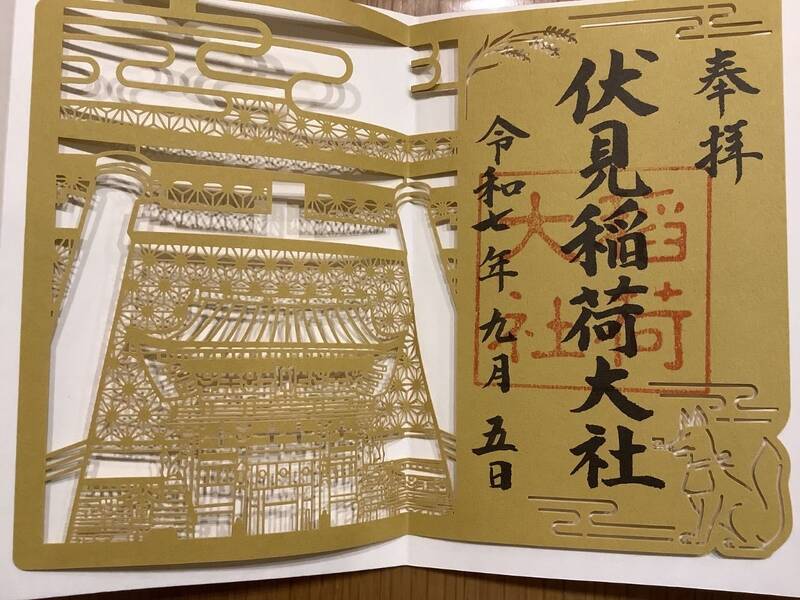 奉拝
伏見稲荷大社
稲荷
大社
令和七年九月五日